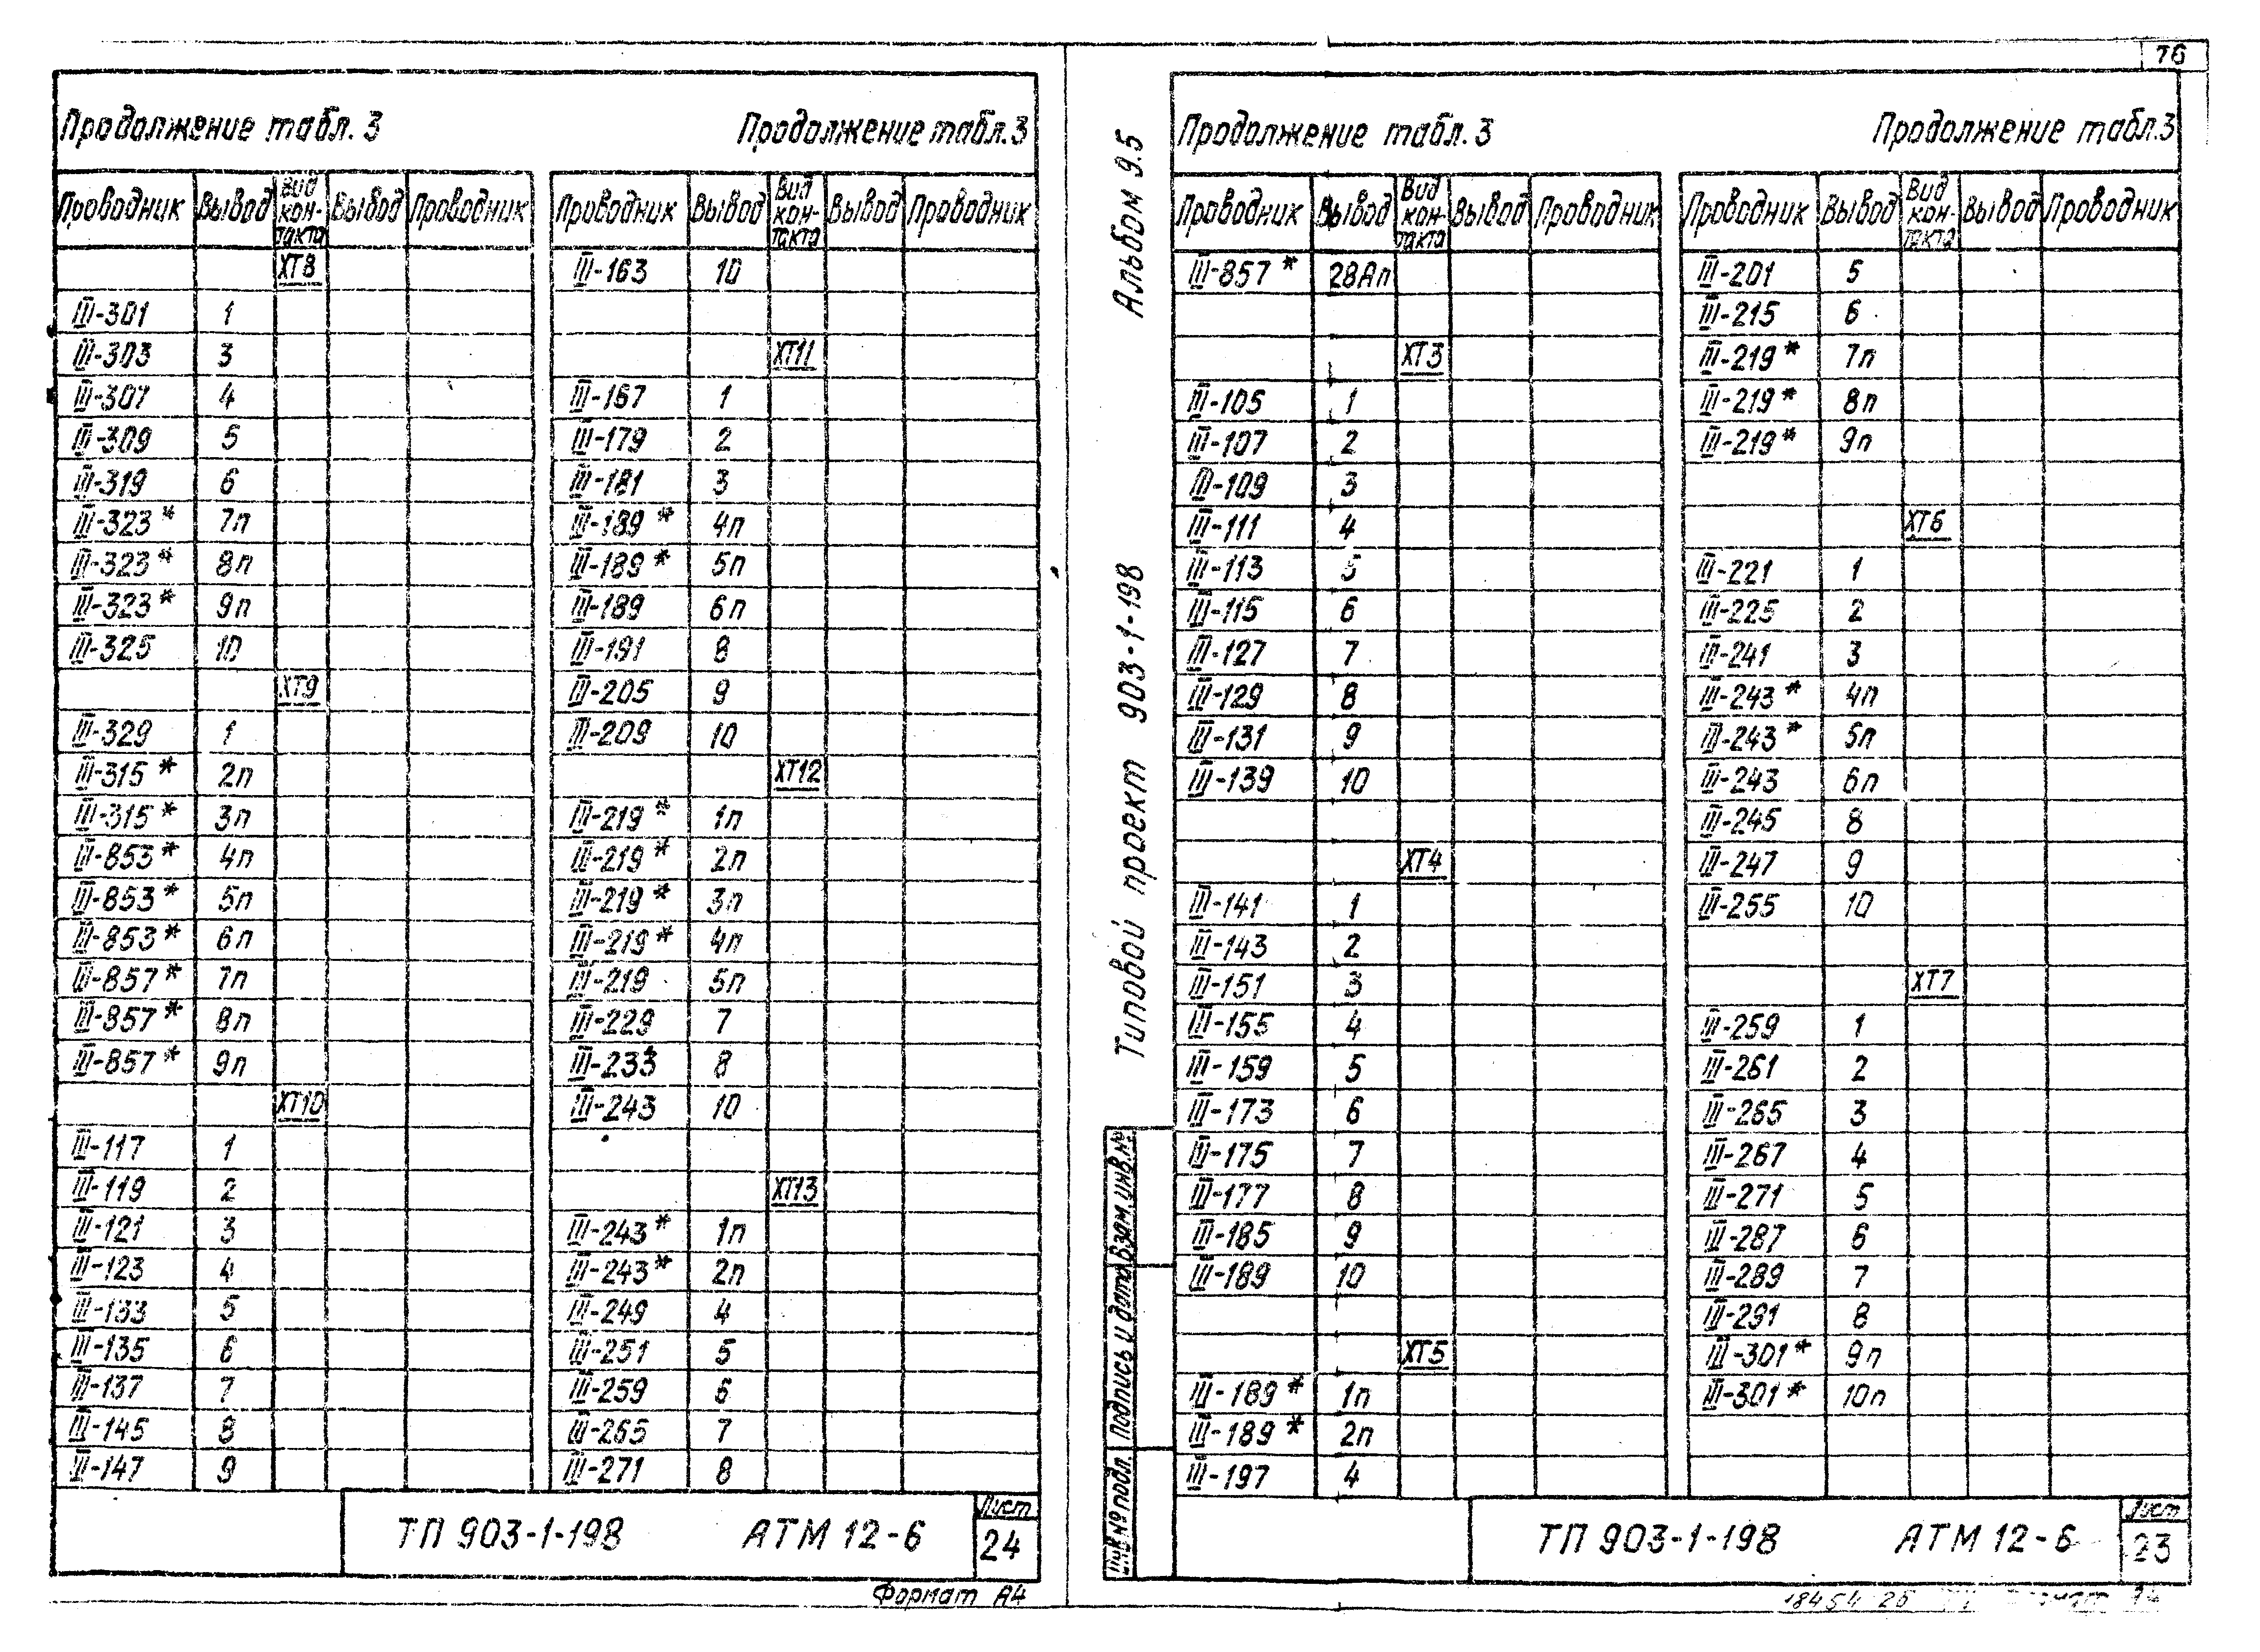 76
Продолжение табл. 3
Продолжение табл.3
Проводник Вывод Вид кон-такта Вывод Проводник
ХТ8
III-301 1
III-303 3
III-307 4
III-309 5
III-319 6
III-323* 7п
III-323* 8п
III-323* 9п
III-325 10
ХТ9
III-329 1
III-315* 2п
III-315* 3п
III-853* 4п
III-853* 5п
III-853* 6п
III-857* 7п
III-857* 8п
III-857* 9п
ХТ10
III-117 1
III-119 2
III-121 3
III-123 4
III-133 5
III-135 6
III-137 7
III-145 8
III-147 9
Проводник Вывод Вид кон-такта Вывод Проводник
III-163 10
ХТ11
III-167 1
III-179 2
III-181 3
III-189* 4п
III-189* 5п
III-189 6п
III-191 8
III-205 9
III-209 10
ХТ12
III-219* 1п
III-219* 2п
III-219* 3п
III-219* 4п
III-219 5п
III-229 7
III-233 8
III-243 10
ХТ13
III-243* 1п
III-243* 2п
III-249 4
III-251 5
III-259 6
III-265 7
III-271 8
ТП 903-1-198 АТМ 12-6
Лист
24
Формат А4
Альбом 9.5
Типовой проект 903-1-198
Взам. инв.№
Подпись и дата
Инв.№ подл.
Продолжение табл. 3
Продолжение табл.3
Проводник Вывод Вид кон-такта Вывод Проводник
III-857* 28Ап
ХТ3
III-105 1
III-107 2
III-109 3
III-111 4
III-113 5
III-115 6
III-127 7
III-129 8
III-131 9
III-139 10
ХТ4
III-141 1
III-143 2
III-151 3
III-155 4
III-159 5
III-173 6
III-175 7
III-177 8
III-185 9
III-189 10
ХТ5
III-189* 1п
III-189* 2п
III-197 4
Проводник Вывод Вид кон-такта Вывод Проводник
III-201 5
III-215 6
III-219* 7п
III-219* 8п
III-219* 9п
ХТ6
III-221 1
III-225 2
III-241 3
III-243* 4п
III-243* 5п
III-243 6п
III-245 8
III-247 9
III-255 10
ХТ7
III-259 1
III-261 2
III-265 3
III-267 4
III-271 5
III-287 6
III-289 7
III-291 8
III-301* 9п
III-301* 10п
ТП 903-1-198 АТМ 12-6
Лист
23
18454 26